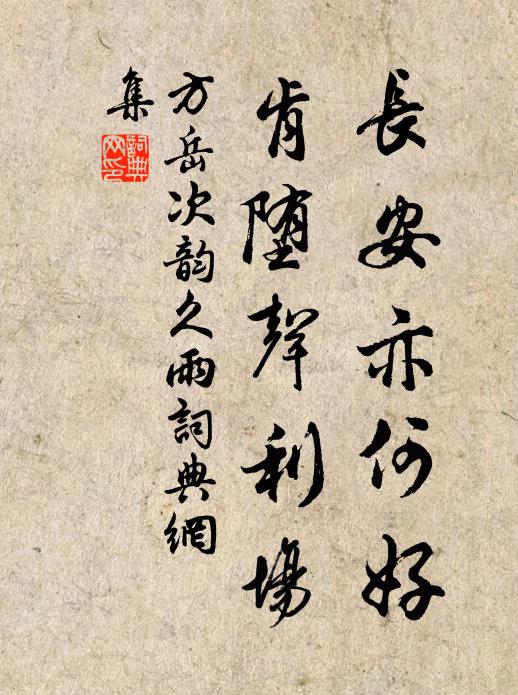 長安亦何好
肯堕聲利場
方岳次韵久雨詞典網
集
詞典
网印